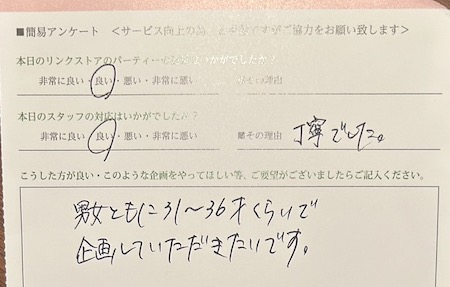 ■簡易アンケート ＜サービス向上の為、ご協力をお願い致します＞
本日のリンクストアのパーティーはいかがでしたか？
非常に良い・良い・悪い・非常に悪い その理由
本日のスタッフの対応はいかがでしたか？
非常に良い・良い・悪い・非常に悪い ■その理由 丁寧でした。
こうした方が良い・このような企画をやってほしい等、ご要望がございましたらご記入ください。
男女ともに31～36才くらいで
企画していただきたいです。